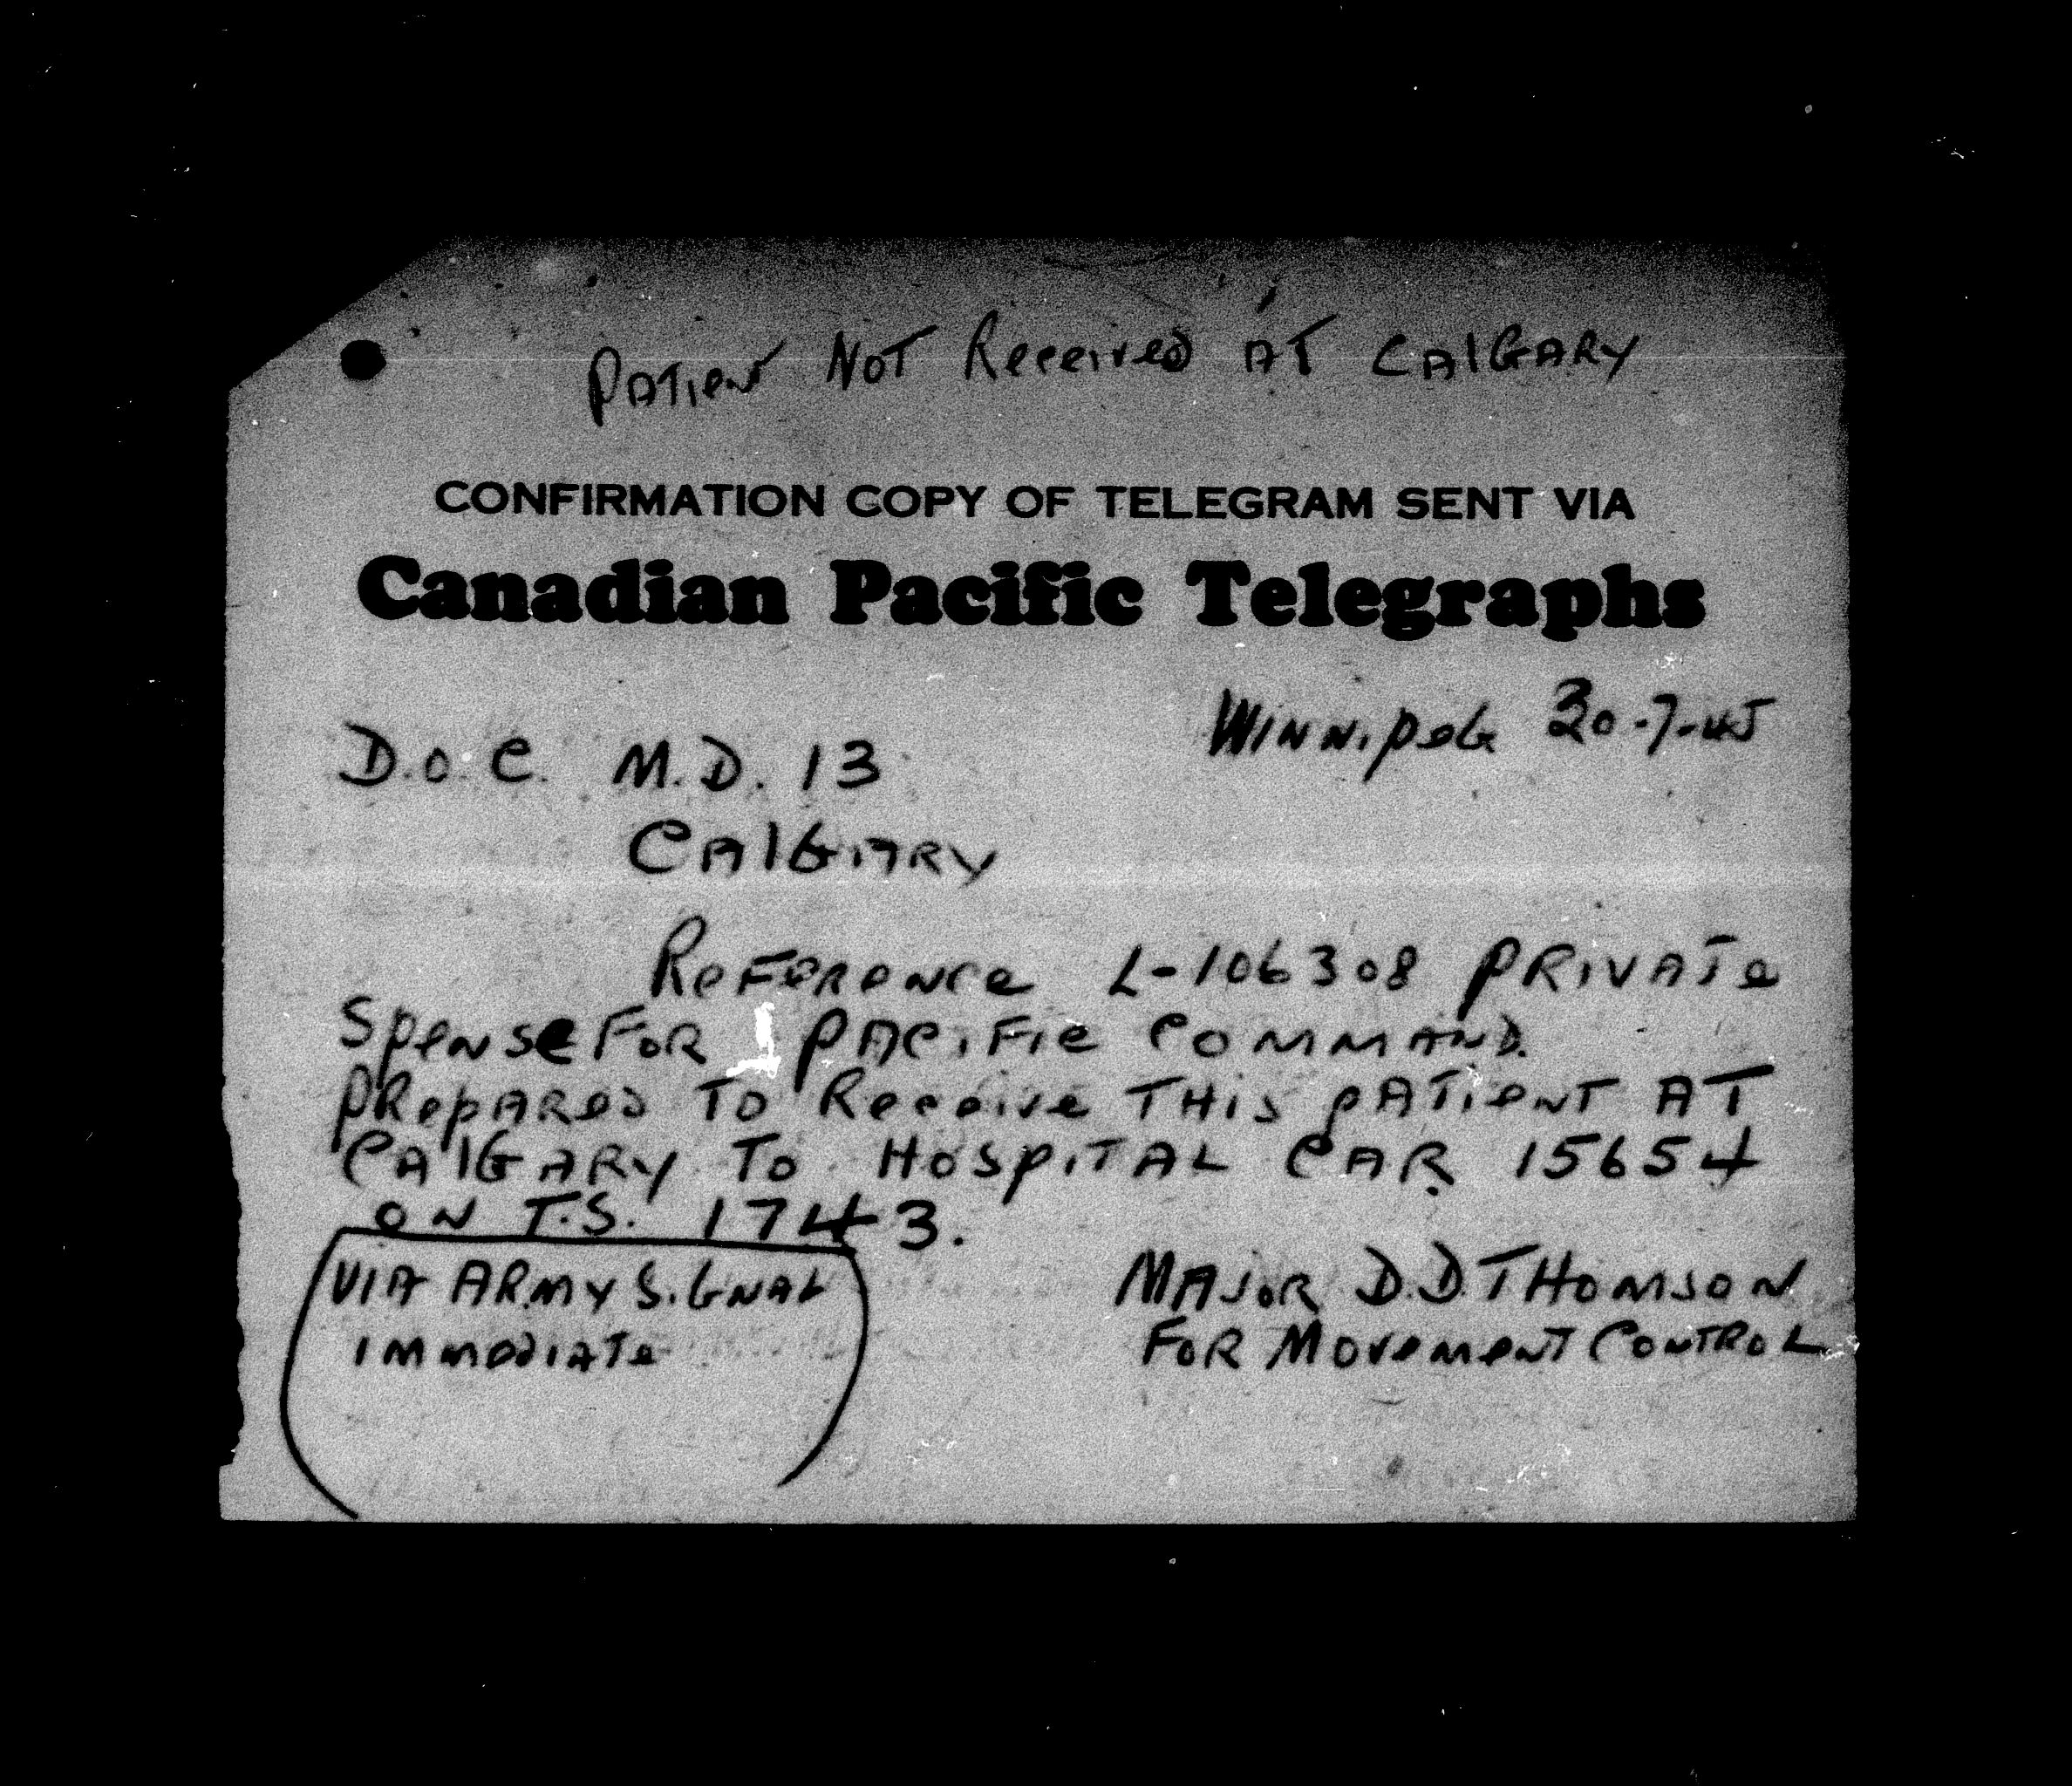 PATIENT NOT Received AT CALGARY
CONFIRMATION COPY OF TELEGRAM SENT VIA
Canadian Pacific Telegraphs
WINNIPEG 30-7-45
D.O.C. M.D. 13
CALGARY
REFERENCE L-106308 PRIVATE
SPENSE FOR PACIFIC COMMAND.
PREPARED TO RECEIVE THIS PATIENT AT
CALGARY TO HOSPITAL CAR 15654
ON T.S. 1743.
VIA ARMY SIGNAL
IMMEDIATE
MAJOR D.D THOMSON
FOR MOVEMENT CONTROL